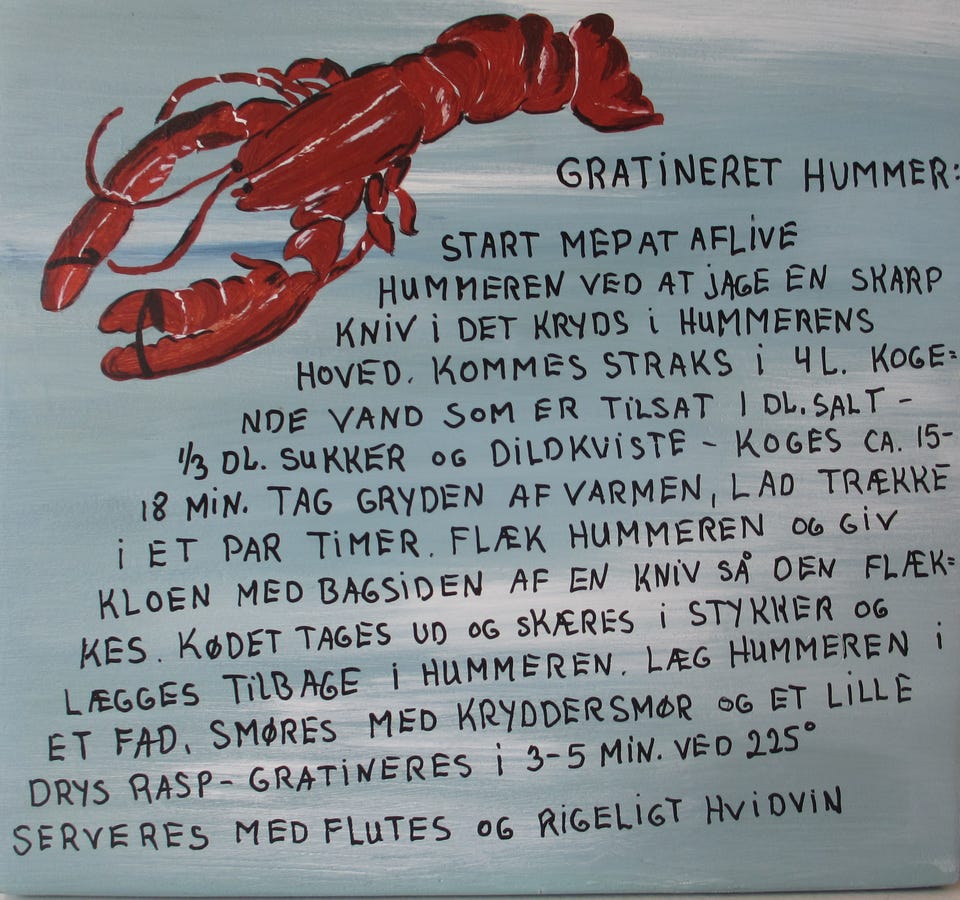 GRATINERET HUMMER:
START MEPAT AFLIVE
HUMMEREN VED AT JAGE EN SKARP
KNIV i DET KRYDS i HUMMERENS
HOVED. KOMMES STRAKS i 4 L. KOGE=
NDE VAND SOM ER TILSAT 1 DL. SALT -
1/3 DL. SUKKER OG DILDKVISTE - KOGES CA. 15-
18 MIN. TAG GRYDEN AF VARMEN, LAD TRÆKKE
i ET PAR TIMER. FLÆK HUMMEREN OG GIV
KLOEN MED BAGSIDEN AF EN KNIV SÅ DEN FLÆK=
KES. KØDET TAGES UD OG SKÆRES i STYKKER OG
LÆGGES TILBAGE i HUMMEREN. LÆG HUMMEREN i
ET FAD. SMØRES MED KRYDDERSMØR OG ET LILLE
DRYS RASP - GRATINERES i 3-5 MIN. VED 225°
SERVERES MED FLUTES OG RIGELIGT HVIDVIN